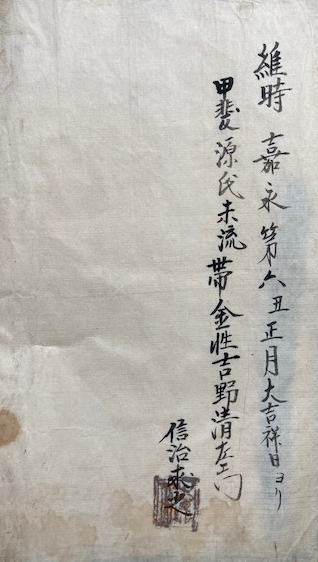 維時嘉永第六丑正月大吉祥日ヨリ
甲斐源氏末流帯金性吉野清左エ門
信治求之